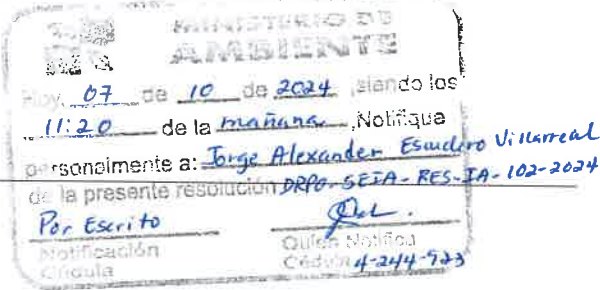 MINISTERIO DE
AMBIENTE
Hoy, 07 de 10 de 2024, siendo los
11:20 de la mañana, Notifique
personalmente a: Jorge Alexander Escudero Villarreal
de la presente resolución DRPO-SEIA-RES-IA-102-2024
Por Escrito
Notificación
Cédula
Quien Notifica
Cédula 4-244-923